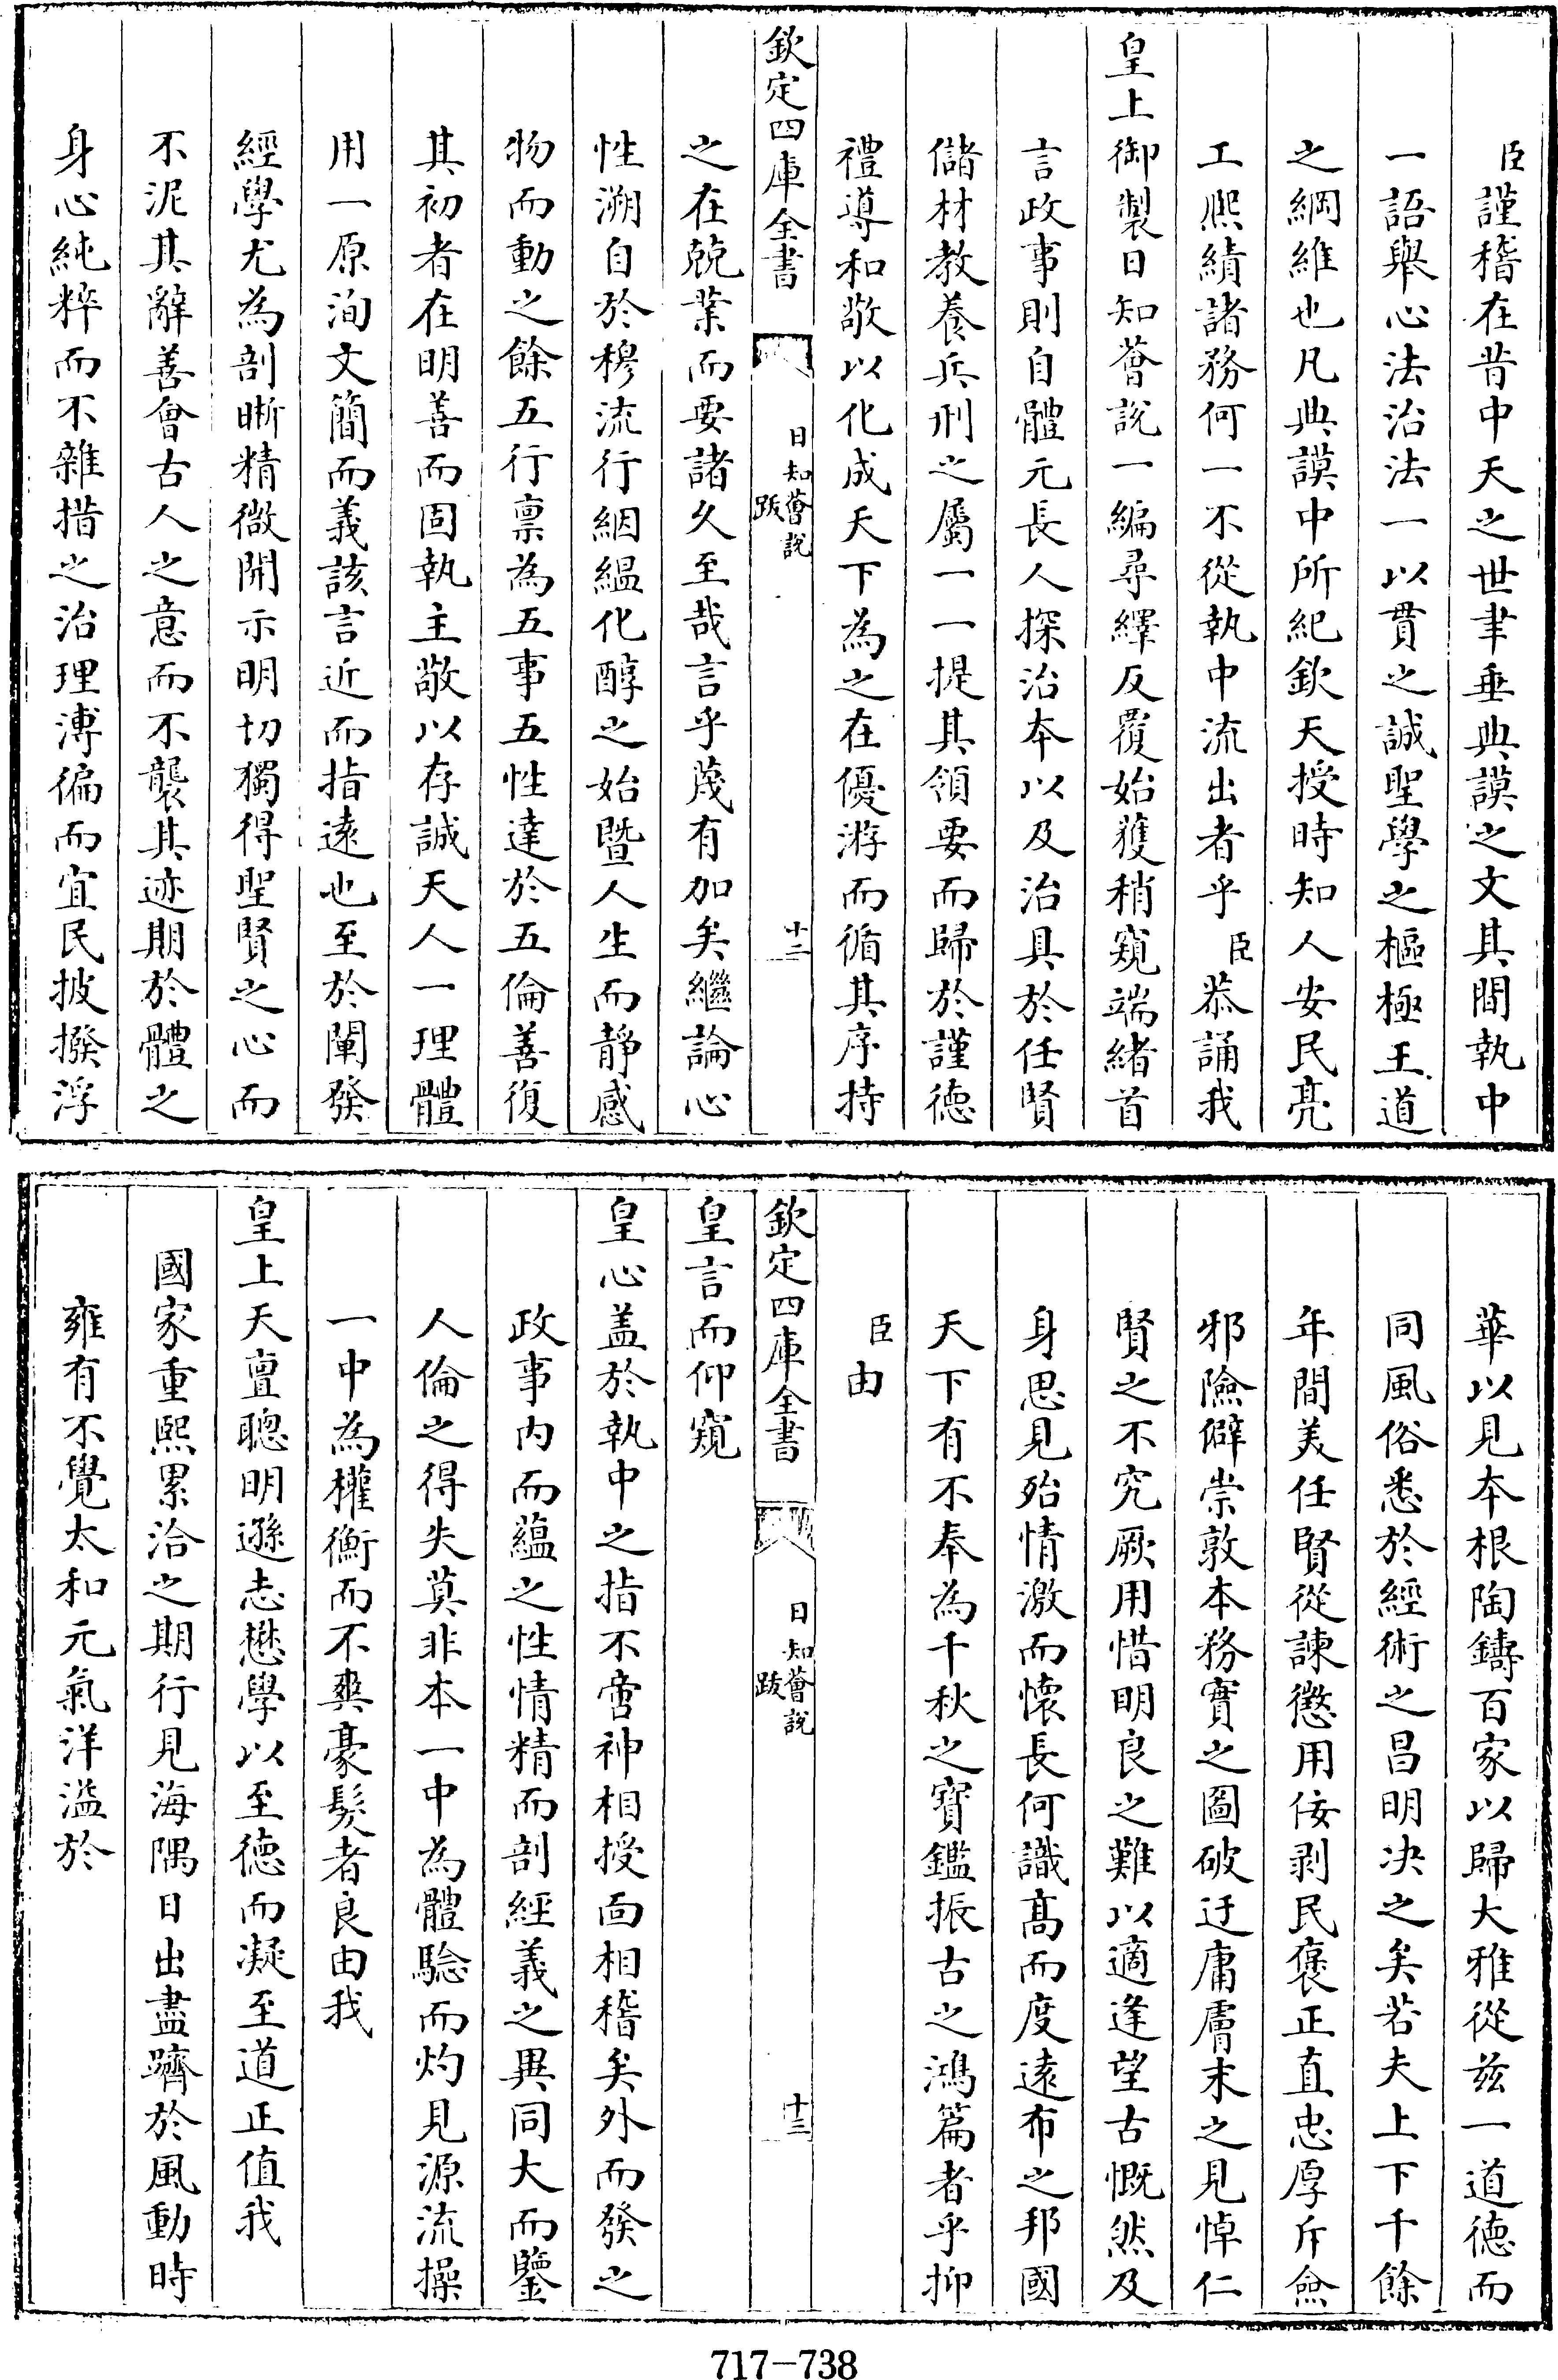 臣謹稽在昔中天之世聿垂典謨之文其間執中
一語舉心法治法一以貫之誠聖學之樞極王道
之綱維也凡典謨中所紀欽天授時知人安民亮
工熙績諸務何一不從執中流出者乎臣恭誦我
皇上御製日知薈說一編尋繹反覆始獲稍窺端緒首
言政事則自體元長人探治本以及治具於任賢
儲材教養兵刑之屬一一提其領要而歸於謹德
禮導和敬以化成天下為之在優游而循其序持
欽定四庫全書
日知薈說
跋
十二
之在兢業而要諸久至哉言乎蔑有加矣繼論心
性溯自於穆流行絪縕化醇之始暨人生而靜感
物而動之餘五行禀為五事五性達於五倫善復
其初者在明善而固執主敬以存誠天人一理體
用一原洵文簡而義該言近而指遠也至於闡發
經學尤為剖晰精微開示明切獨得聖賢之心而
不泥其辭善會古人之意而不襲其迹期於體之
身心純粹而不雜措之治理溥徧而宜民披撥浮
華以見本根陶鑄百家以歸大雅從兹一道德而
同風俗悉於經術之昌明決之矣若夫上下千餘
年間美任賢從諫懲用佞剥民褒正直忠厚斥僉
邪險僻崇敦本務實之圖破迂庸膚末之見悼仁
賢之不究厥用惜明良之難以適逢望古慨然及
身思見殆情激而懷長何識髙而度遠布之邦國
天下有不奉為千秋之寶鑑振古之鴻篇者乎抑
臣由
欽定四庫全書
日知薈說
跋
十三
皇言而仰窺
皇心盖於執中之指不啻神相授面相稽矣外而發之
政事内而藴之性情精而剖經義之異同大而鑒
人倫之得失莫非本一中為體驗而灼見源流操
一中為權衡而不爽豪髮者良由我
皇上天亶聰明遜志懋學以至德而凝至道正值我
國家重熙累洽之期行見海隅日出盡躋於風動時
雍有不覺太和元氣洋溢於
717-738